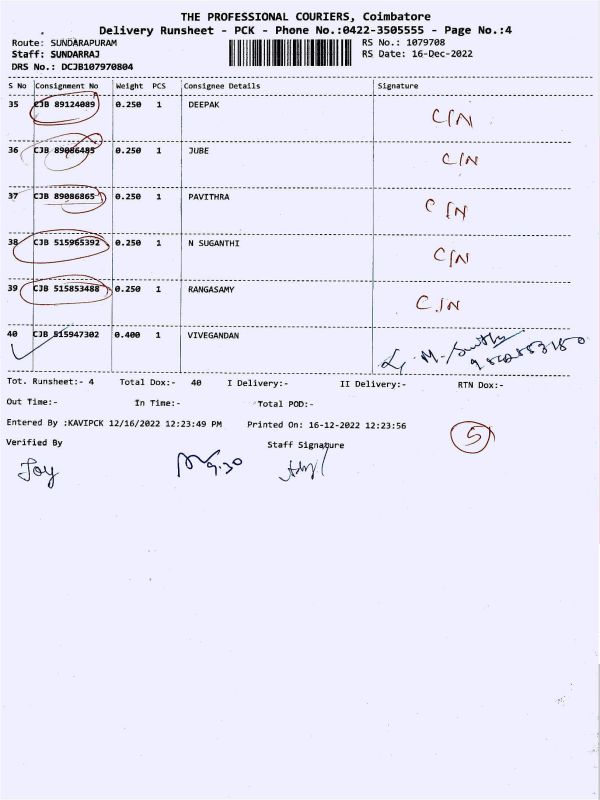 THE PROFESSIONAL COURIERS, Coimbatore
Delivery Runsheet - PCK - Phone No.:0422-3505555 - Page No.:4
Route: SUNDARAPURAM RS No.: 1079708
Staff: SUNDARRAJ RS Date: 16-Dec-2022
DRS No.: DCJB107970804
S No Consignment No Weight PCS Consignee Details Signature
35 CJB 89124089 0.250 1 DEEPAK C/N
36 CJB 89086485 0.250 1 JUBE C/N
37 CJB 89086865 0.250 1 PAVITHRA C/N
38 CJB 515965392 0.250 1 N SUGANTHI C/N
39 CJB 515853488 0.250 1 RANGASAMY C/N
40 CJB 515947302 0.400 1 VIVEGANDAN
Tot. Runsheet:- 4 Total Dox:- 40 I Delivery:- II Delivery:- RTN Dox:-
Out Time:- In Time:- Total POD:-
Entered By :KAVIPCK 12/16/2022 12:23:49 PM Printed On: 16-12-2022 12:23:56
5
Verified By Staff Signature
Joy 9.30